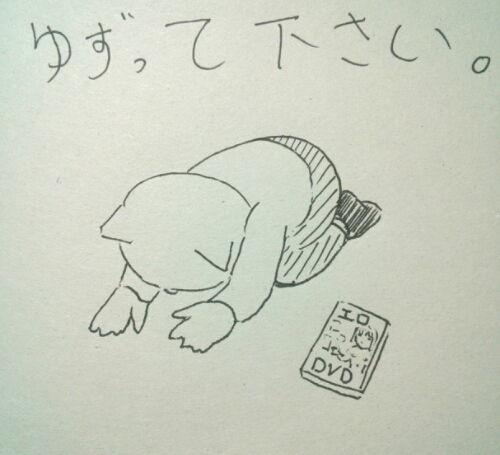 ゆずって下さい。
エロ
DVD